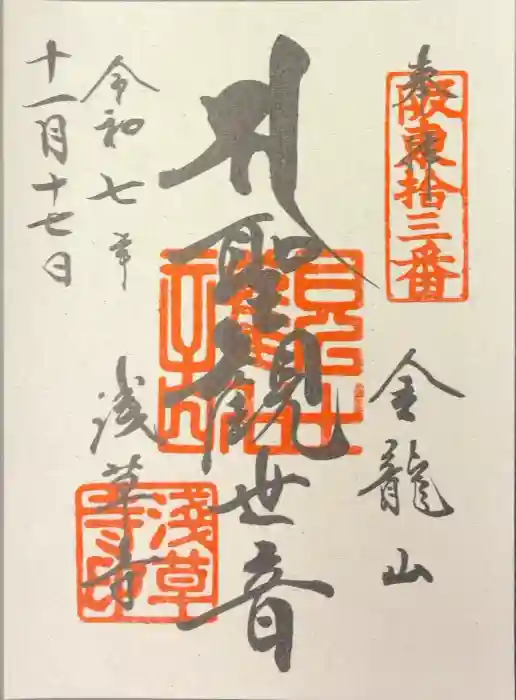 奉拝
阪東拾三番
金龍山
聖観世音
浅草寺
令和七年
十一月十七日
浅草寺印